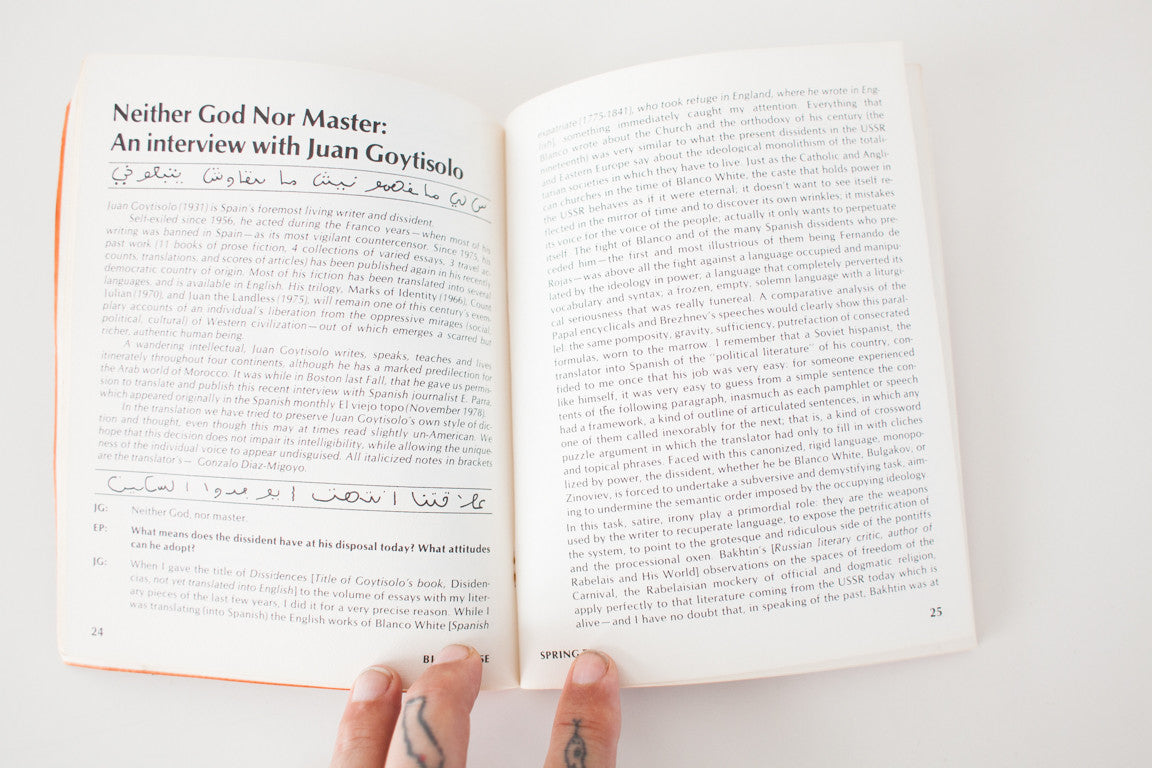 Neither God Nor Master:
An interview with Juan Goytisolo
Juan Goytisolo (1931) is Spain's foremost living writer and dissident.
Self-exiled since 1956, he acted during the Franco years—when most of his
writing was banned in Spain—as its most vigilant countercensor. Since 1975, his
past work (11 books of prose fiction, 4 collections of varied essays, 3 travel ac-
counts, translations, and scores of articles) has been published again in his recently
democratic country of origin. Most of his fiction has been translated into several
languages, and is available in English. His trilogy, Marks of Identity (1966), Count
Julian (1970), and Juan the Landless (1975), will remain one of this century's exem-
plary accounts of an individual's liberation from the oppressive mirages (social,
political, cultural) of Western civilization—out of which emerges a scarred but
richer, authentic human being.
A wandering intellectual, Juan Goytisolo writes, speaks, teaches and lives
itinerately throughout four continents, although he has a marked predilection for
the Arab world of Morocco. It was while in Boston last Fall, that he gave us permis-
sion to translate and publish this recent interview with Spanish journalist E. Parra,
which appeared originally in the Spanish monthly El viejo topo (November 1978).
In the translation we have tried to preserve Juan Goytisolo's own style of dic-
tion and thought, even though this may at times read slightly un-American. We
hope that this decision does not impair its intelligibility, while allowing the unique-
ness of the individual voice to appear undisguised. All italicized notes in brackets
are the translator's— Gonzalo Diaz-Migoyo.
JG: Neither God, nor master.
EP: What means does the dissident have at his disposal today? What attitudes
can he adopt?
JG: When I gave the title of Dissidences [Title of Goytisolo's book, Disiden-
cias, not yet translated into English] to the volume of essays with my liter-
ary pieces of the last few years, I did it for a very precise reason. While I
was translating (into Spanish) the English works of Blanco White [Spanish
24
expatriate (1775-1841), who took refuge in England, where he wrote in Eng-
lish], something immediately caught my attention. Everything that
Blanco wrote about the Church and the orthodoxy of his century (the
nineteenth) was very similar to what the present dissidents in the USSR
and Eastern Europe say about the ideological monolithism of the totali-
tarian societies in which they have to live. Just as the Catholic and Angli-
can churches in the time of Blanco White, the caste that holds power in
the USSR behaves as if it were eternal; it doesn't want to see itself re-
flected in the mirror of time and to discover its own wrinkles; it mistakes
its voice for the voice of the people; actually it only wants to perpetuate
itself. The fight of Blanco and of the many Spanish dissidents who pre-
ceded him—the first and most illustrious of them being Fernando de
Rojas—was above all the fight against a language occupied and manipu-
lated by the ideology in power; a language that completely perverted its
vocabulary and syntax; a frozen, empty, solemn language with a liturgi-
cal seriousness that was really funereal. A comparative analysis of the
Papal encyclicals and Brezhnev's speeches would clearly show this paral-
lel: the same pomposity, gravity, sufficiency, putrefaction of consecrated
formulas, worn to the marrow. I remember that a Soviet hispanist, the
translator into Spanish of the "political literature" of his country, con-
fided to me once that his job was very easy: for someone experienced
like himself, it was very easy to guess from a simple sentence the con-
tents of the following paragraph, inasmuch as each pamphlet or speech
had a framework, a kind of outline of articulated sentences, in which any
one of them called inexorably for the next; that is, a kind of crossword
puzzle argument in which the translator had only to fill in with cliches
and topical phrases. Faced with this canonized, rigid language, monopo-
lized by power, the dissident, whether he be Blanco White, Bulgakov, or
Zinoviev, is forced to undertake a subversive and demystifying task, aim-
ing to undermine the semantic order imposed by the occupying ideology.
In this task, satire, irony play a primordial role: they are the weapons
used by the writer to recuperate language, to expose the petrification of
the system, to point to the grotesque and ridiculous side of the pontiffs
and the processional oxen. Bakhtin's [Russian literary critic, author of
Rabelais and His World] observations on the spaces of freedom of the
Carnival, the Rabelaisian mockery of official and dogmatic religion,
apply perfectly to that literature coming from the USSR today which is
alive—and I have no doubt that, in speaking of the past, Bakhtin was at
SPRING
25